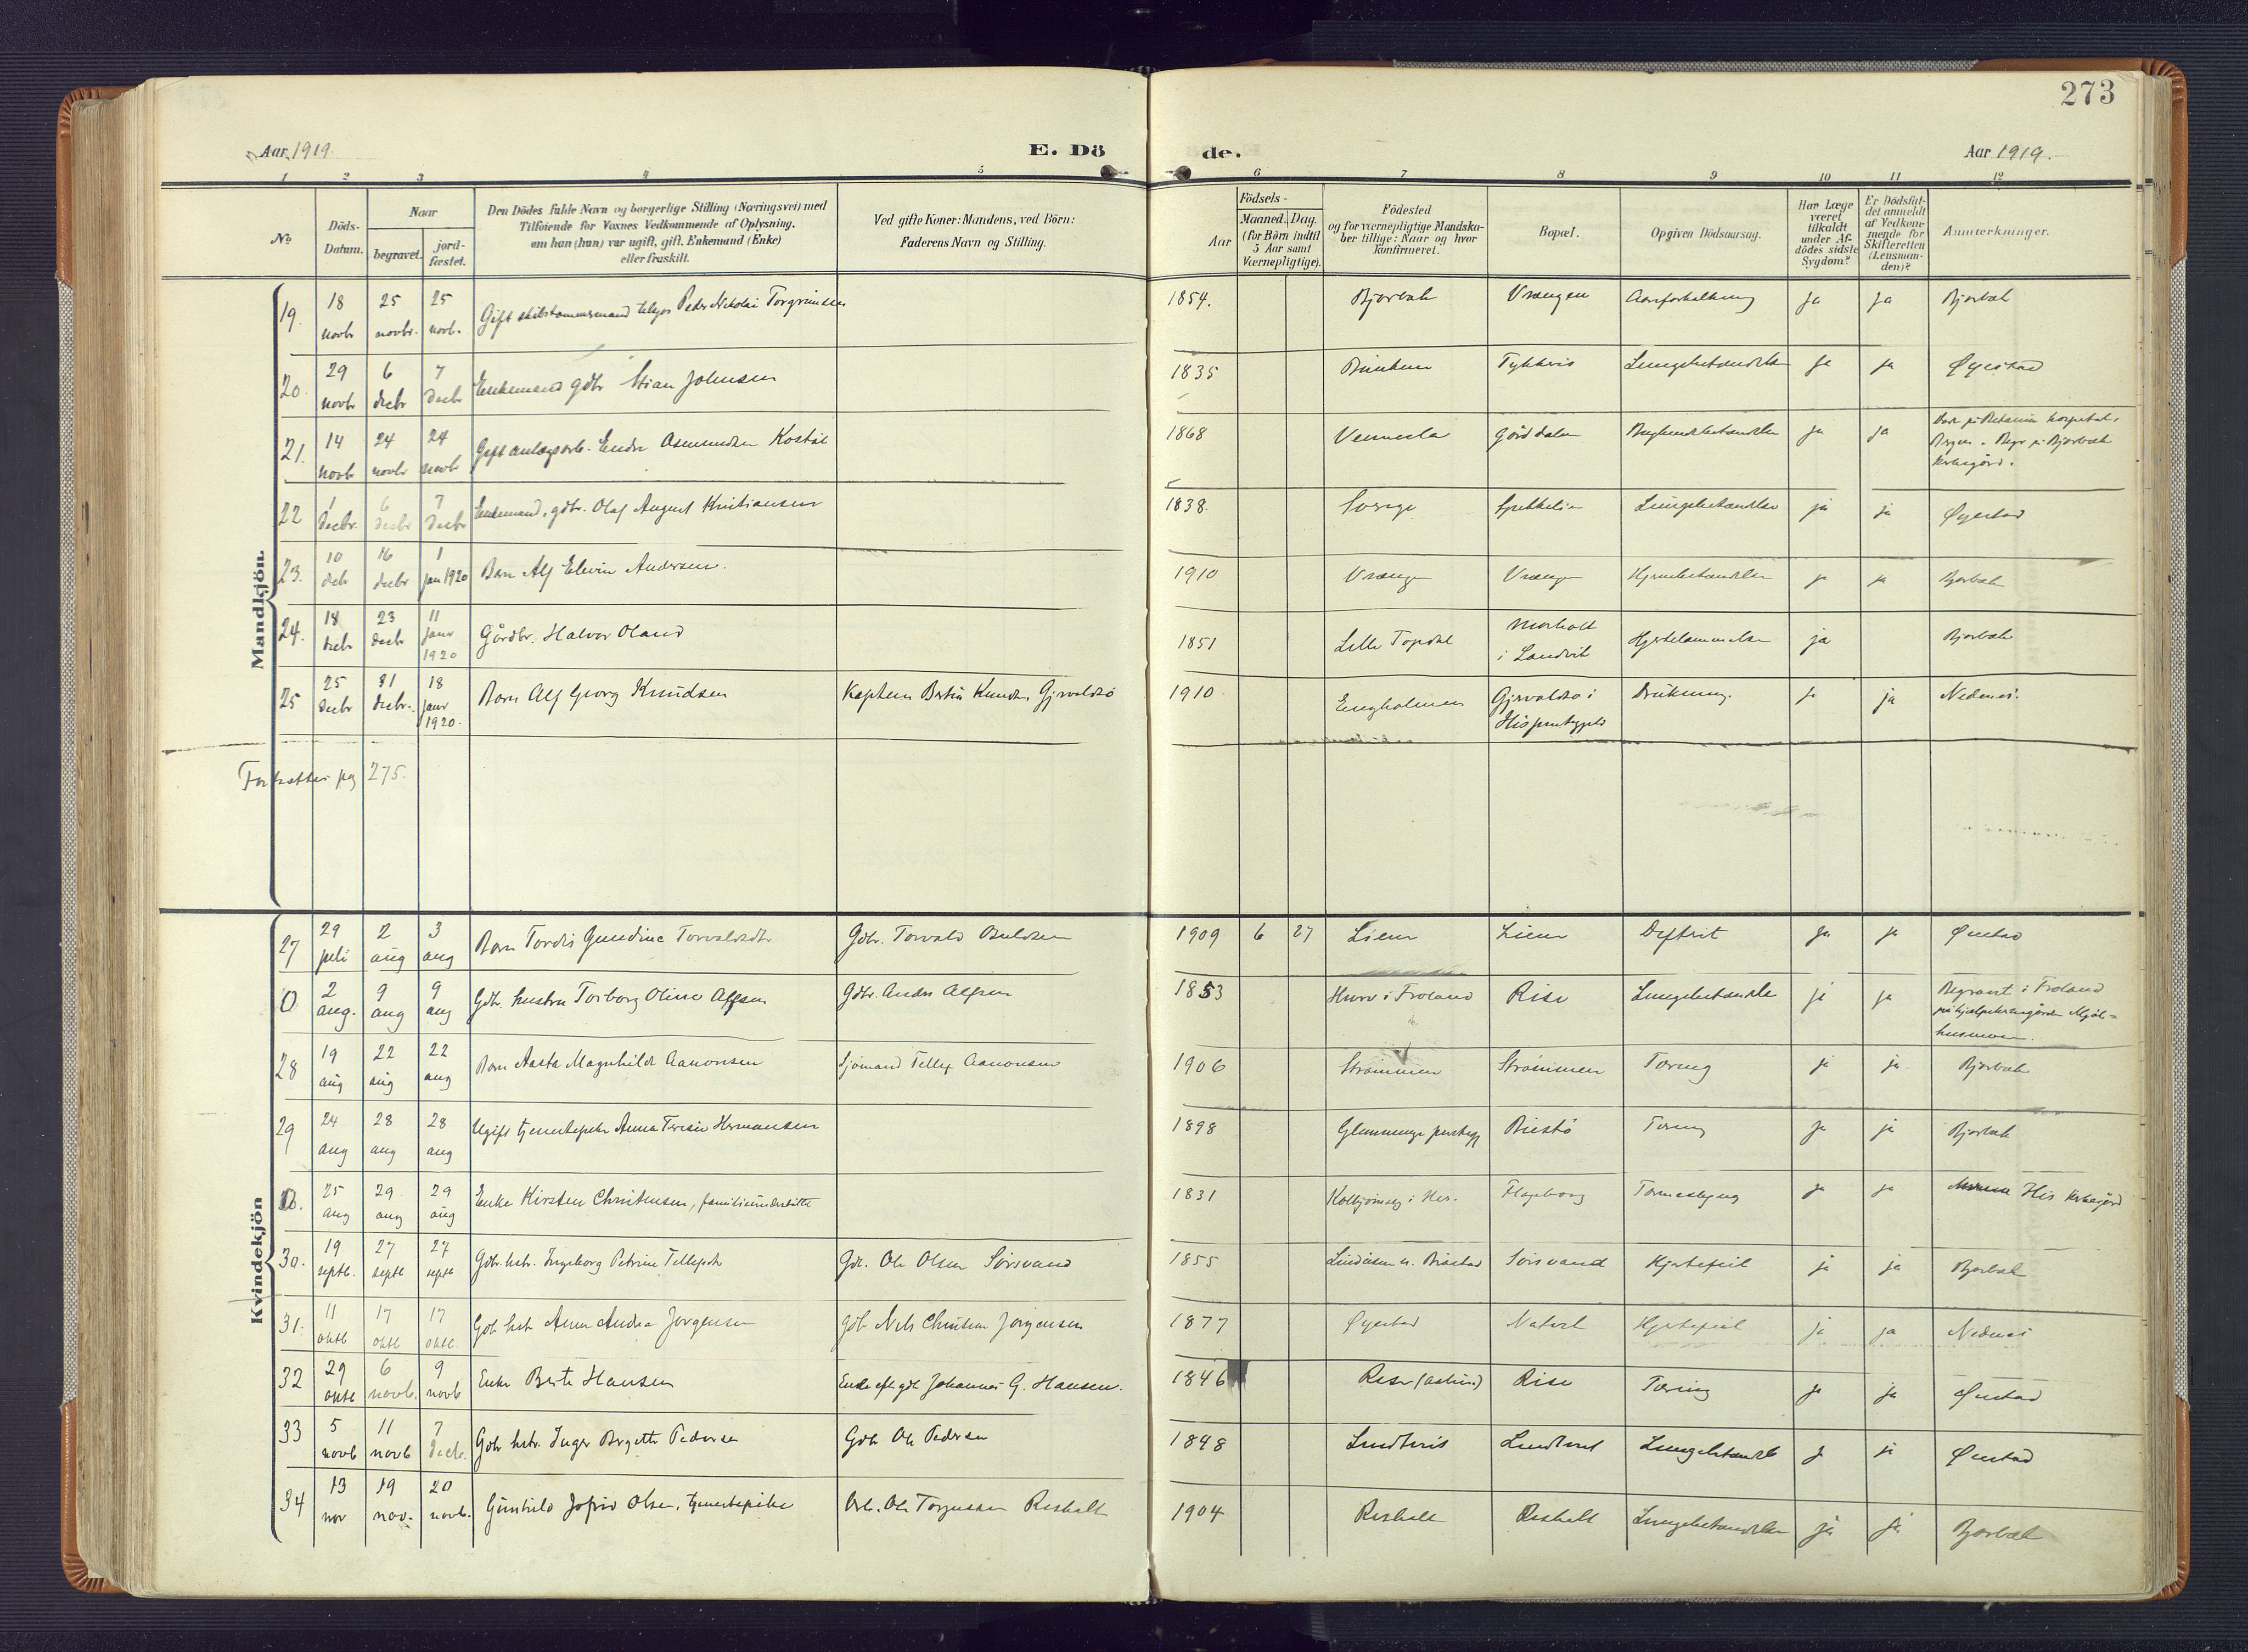 273
Aar 1919.
E. Dö
de.
Aar 1919.
1 2 3 4 5 6 7 8 9 10 11 12
No
Döds-Datum.
Naar
begravet.
jord-fæstet.
Den Dödes fulde Navn og borgerlige Stilling (Næringsvei) med Tilföiende for Voxnes Vedkommende af Oplysning, om han (hun) var ugift, gift, Enkemand (Enke) eller fraskilt.
Ved gifte Koner: Mandens, ved Börn: Faderens Navn og Stilling.
Födsels-
Aar
Maaned. Dag.
(for Börn indtil 5 Aar samt Værnepligtige).
Födested og for værnepligtige Mandskaber tillige: Naar og hvor konfirmeret.
Bopæl.
Opgiven Dödsaarsag.
Har Læge været tilkaldt under Afdödes sidste Sygdom?
Er Dödsfaldet anmeldt af Vedkommende for Skifteretten (Lensmanden)?
Anmærkninger.
Mandkjön.
19. 18 novbr 25 novbr. 25 novb. Gift skibstømmermand Peder Nikolai Torgrimsen 1854. Bjorbæk Vrængen Aareforkalkning ja ja Bjorbæk
20. 29 novbr 6 decbr 7 decbr Enkemand gdbr Stian Johnsen 1835 Lungebetændelse ja ja Øyestad
21. 14 novb 24 novbr 24 novb Gift anlægsarb. Endre Asmundsen Kostøl 1868 Vennesla Gårddalen ja ja Døde på Betanien hospital, Bergen. Begr på Bjorbæk kirkegård.
22 1 decbr. 6 decbr 7 decbr Enkemand, gdbr. Olaf August Kristiansen 1838. Sverige Lungebetændelse ja ja Øyestad
23. 10 decbr 16 decbr 1 jan 1920 Barn Alf Elevin Andersen. 1910 Vrængen Vrængen Hjernebetændelse ja ja Bjorbæk
24. 18 decbr 23 decbr 11 janr 1920 Gårdbr. Halvor Oland 1851 Lille Topdal Morholt i Landvik Hjertelammelse ja Bjorbæk
25 25 decbr 31 decbr. 18 janr 1920. Barn Alf Georg Knudsen Kaptein Bertin Knudsen, Gjervoldsø 1910 Engholmen Gjervoldsø i His prestegjeld Drukning. ja ja Nedenes.
Fortsættes pag 275.
Kvindekjön
27 29 juli 2 aug 3 aug Barn Tordis Gundine Torvaldsdtr Gdbr. Torvald 1909 6 27 Liene Liene Difterit ja ja Øiestad
0 2 aug. 9 aug 9 aug Gdbr. hustru Torborg Oline Alfsen Gdbr. Anders Alfsen 1853 i Froland Rise Lungebetændelse ja ja Begravet i Froland på hjælpekirkegården Mjålhusmoen.
28 19 aug 22 aug 22 aug Barn Aasta Magnhild Aanonsen Sjømand Tellef Aanonsen 1906 Strømmen Strømmen Tæring ja ja Bjorbæk
29 24 aug 28 aug 28 aug Ugift tjenestepike Anna Teresie Hermansen 1898 Glemminge prestegj Biestø Tæring ja ja Bjorbæk
0. 25 aug 29 aug 29 aug Enke Kirsten Christensen, familieunderstøtte 1831 Kolbjørnsvig i His. Flageborg ja ja His kirkegård
30. 19 septb. 27 septb 27 septb Gdbr. hstr. Ingeborg Petrine Tellefsdtr Gdr. Ole Olsen Sørsvand 1855 Sørsvand Hjertefeil ja ja Bjorbæk
31. 11 oktb 17 oktb 17 oktb. Gdbr hstr Anna Andrea Jørgensen Gdbr Nils Christian Jørgensen 1877 Øyestad Natvet Hjertefeil ja ja Nedenes
32 29 oktb 6 novb. 9 novb Enke Berte Hansen Enke eft gdbr Johannes G. Hansen. 1846 Rise Tæring ja ja Øiestad
33 5 novb 11 novb 7 decb. Gdbr hstr. Inger Birgitte Pedersen Gdbr Ole Pedersen 1848 Lundtveit Lundtveit Lungebetændelse ja ja Øiestad
34 13 nov 19 nov. 20 novb. Gunhild Jofrid Olsen, tjenestepike Arb. Ole Torjussen Resholt 1904 Resholt Resholt Lungebetændelse ja ja Bjorbæk